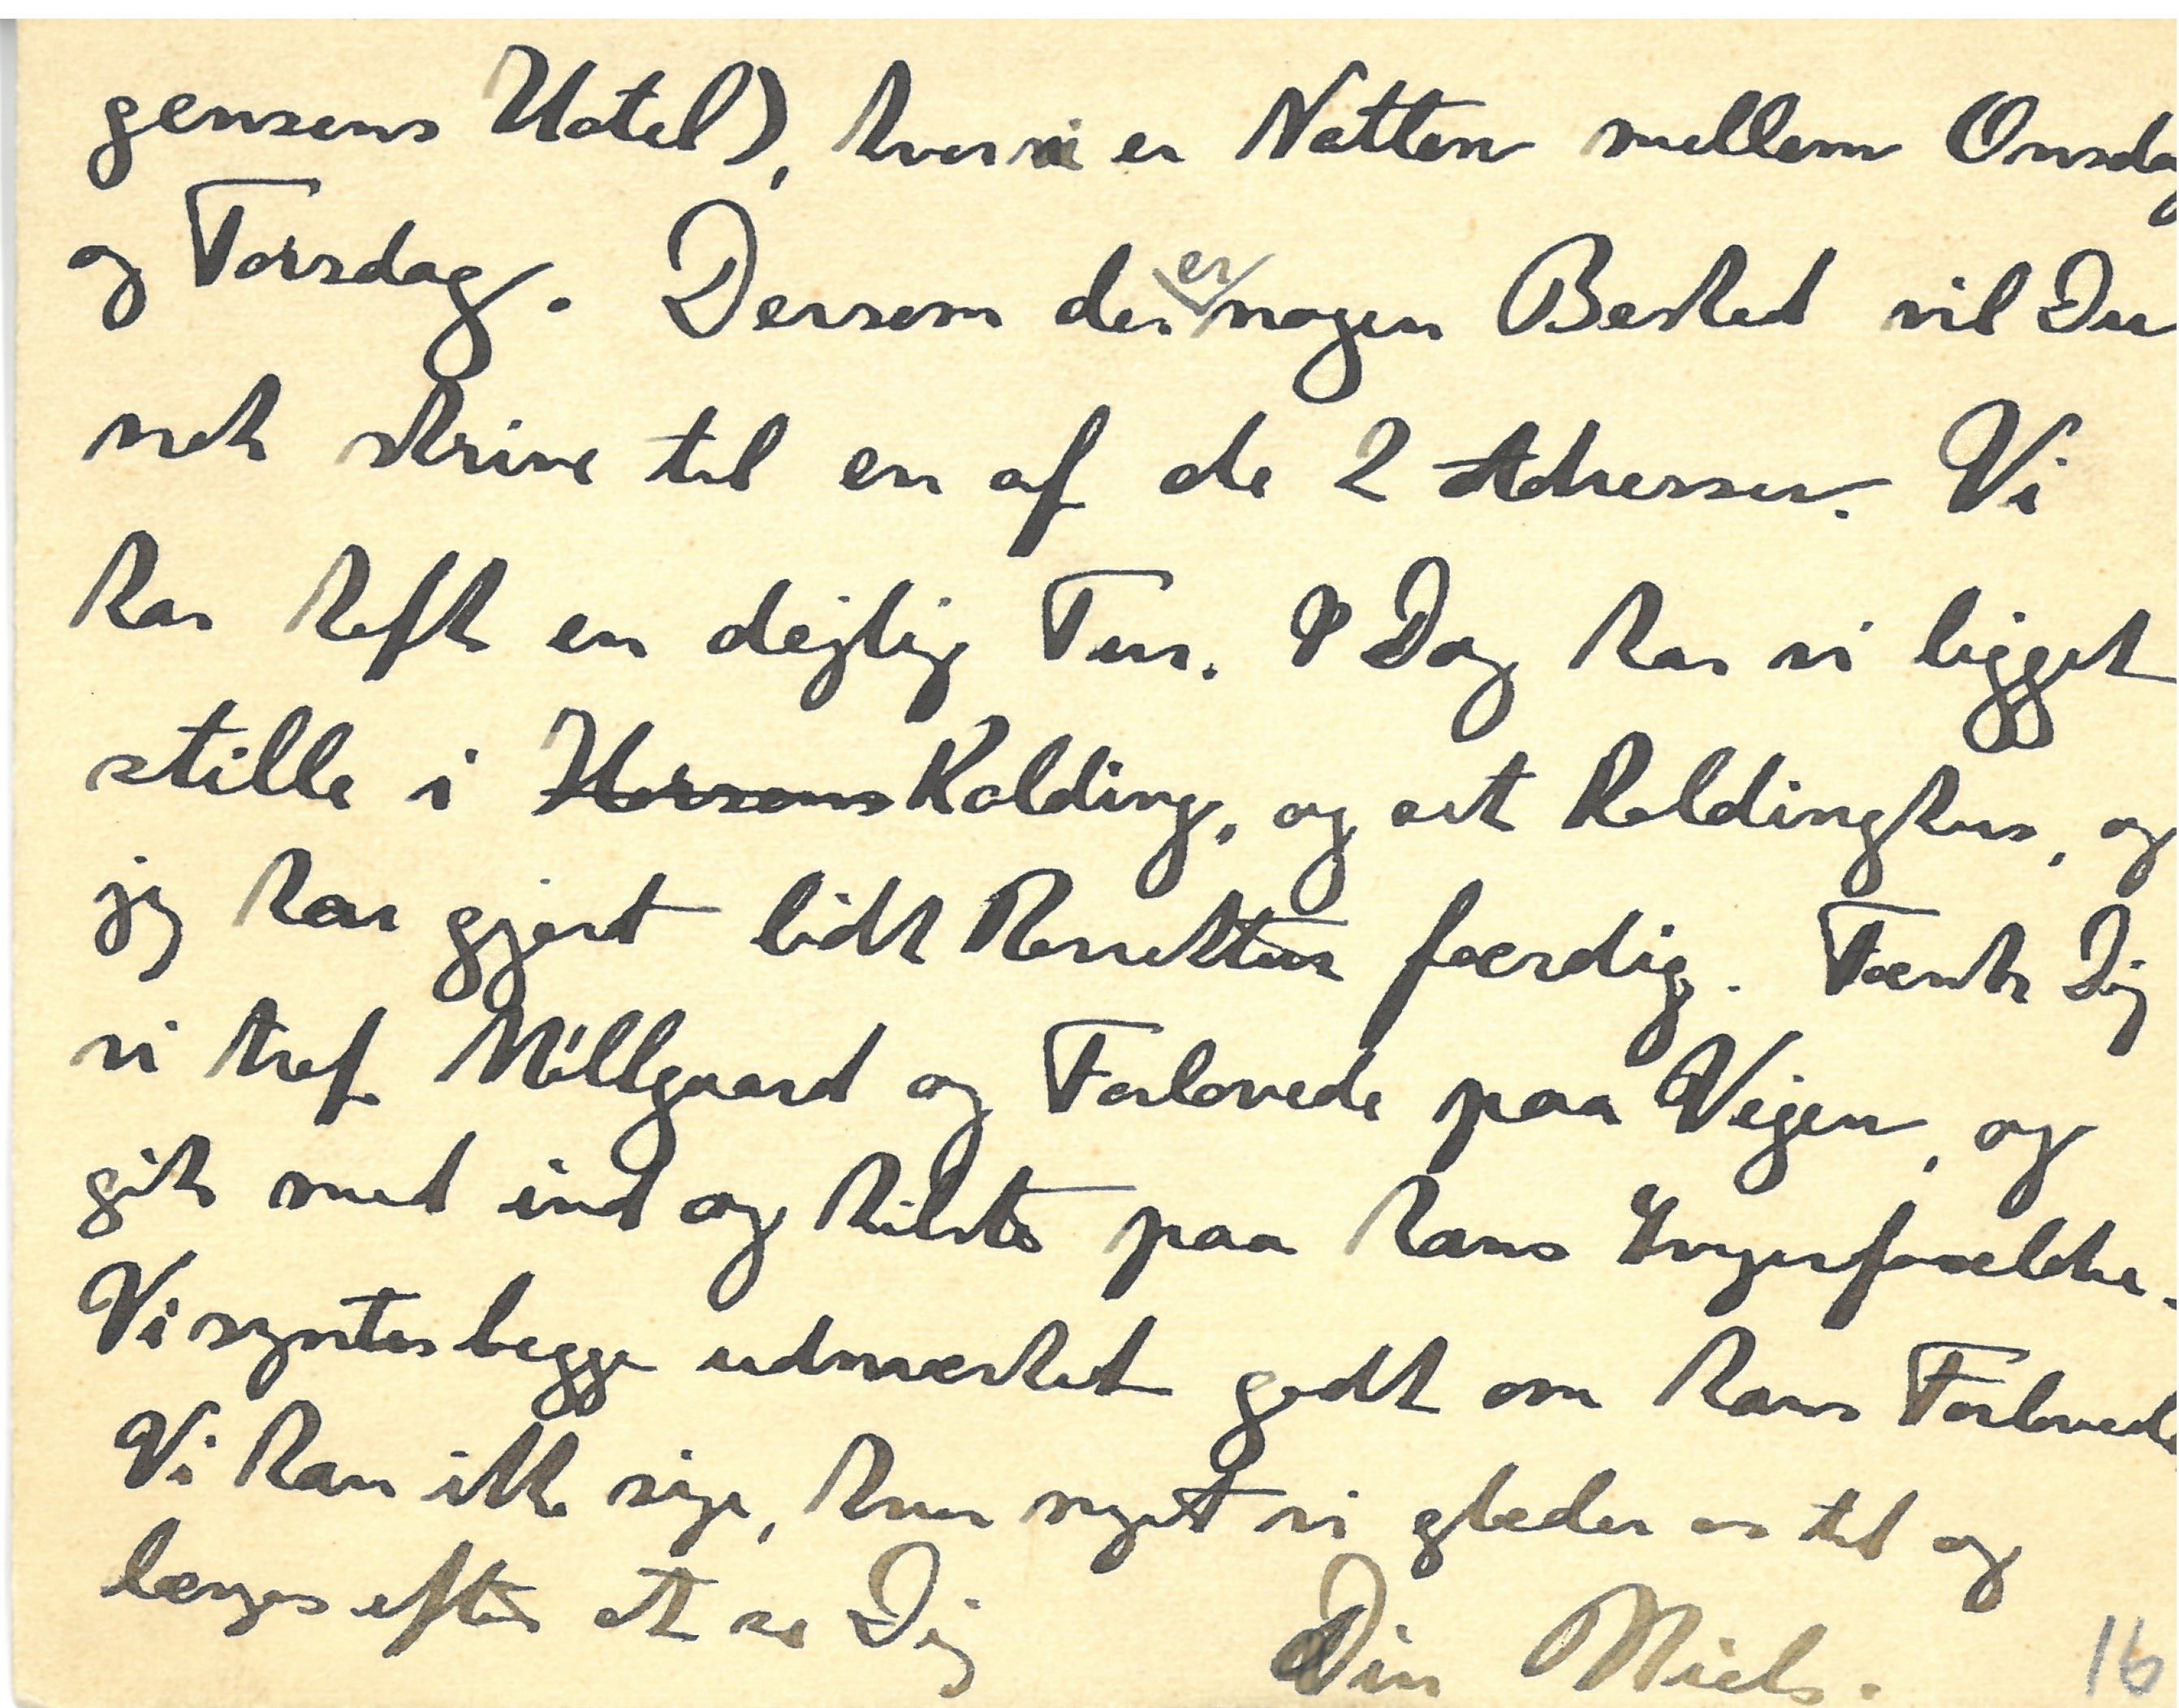 gensens Hotel), hvor vi er Natten mellem Onsdag
og Torsdag. Dersom der er nogen Besked vil Du
nok skrive til en af de 2 Adresser. Vi
har haft en dejlig Tur. I Dag har vi ligget
stille i Horsens Kolding, og set Koldinghus, og
jeg har gjort lidt Korrektur færdig. Tænk Dig
vi traf Millgaard og Forlovede paa Vejen, og
gik med ind og hilste paa hans Svigerforældre.
Vi syntes begge udmærket godt om hans Forlovede
Vi kan ikke sige, hvor meget vi glæder os til og
længes efter at se Dig
Din Niels.
16